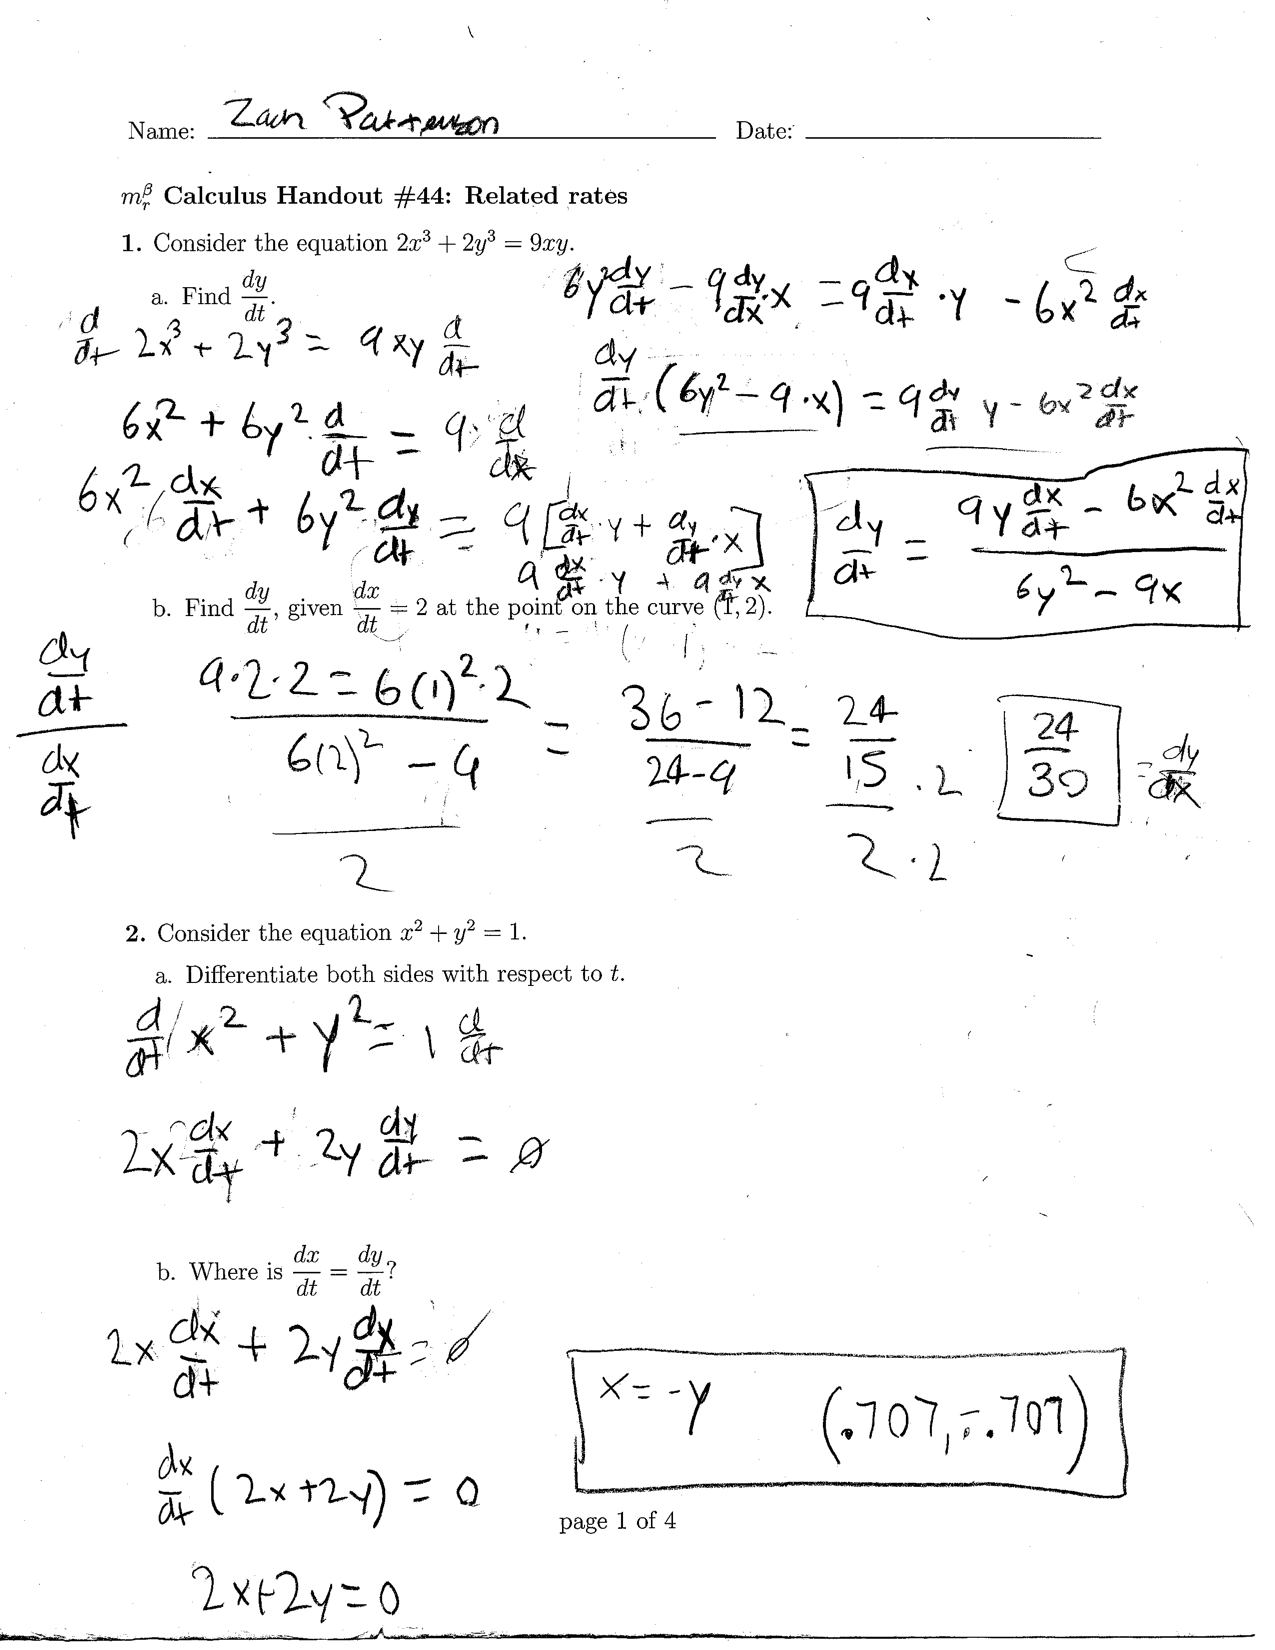 Name: Zach Patterson Date:
m_r^β Calculus Handout #44: Related rates
1. Consider the equation 2x³ + 2y³ = 9xy.
a. Find dy/dt.
d/dt 2x³ + 2y³ = 9xy d/dt
6x² + 6y² · d/dt = 9 · d/dx
6x² dx/dt + 6y² · dy/dt = 9[dx/dt · y + dy/dt · x]
9 dx/dt · y + 9 dy/dt x
6y² dy/dt - 9 dy/dx · x = 9 dx/dt · y - 6x² dx/dt
dy/dt (6y² - 9 · x) = 9 dy/dt y - 6x² dx/dt
dy/dt = (9y dx/dt - 6x² dx/dt)/(6y² - 9x)
b. Find dy/dt, given dx/dt = 2 at the point on the curve (1, 2).
(dy/dt)/(dx/dt) ((9·2·2 = 6(1)²·2)/(6(2)² - 9))/2 = ((36 - 12)/(24 - 9))/2 = (24/15 · 2)/(2 · 2) 24/30 = dy/dx
2. Consider the equation x² + y² = 1.
a. Differentiate both sides with respect to t.
d/dt x² + y² = 1 d/dt
2x dx/dt + 2y dy/dt = 0
b. Where is dx/dt = dy/dt?
2x dx/dt + 2y dx/dt = 0
dx/dt (2x + 2y) = 0
2x + 2y = 0
x = -y (.707, -.707)
page 1 of 4